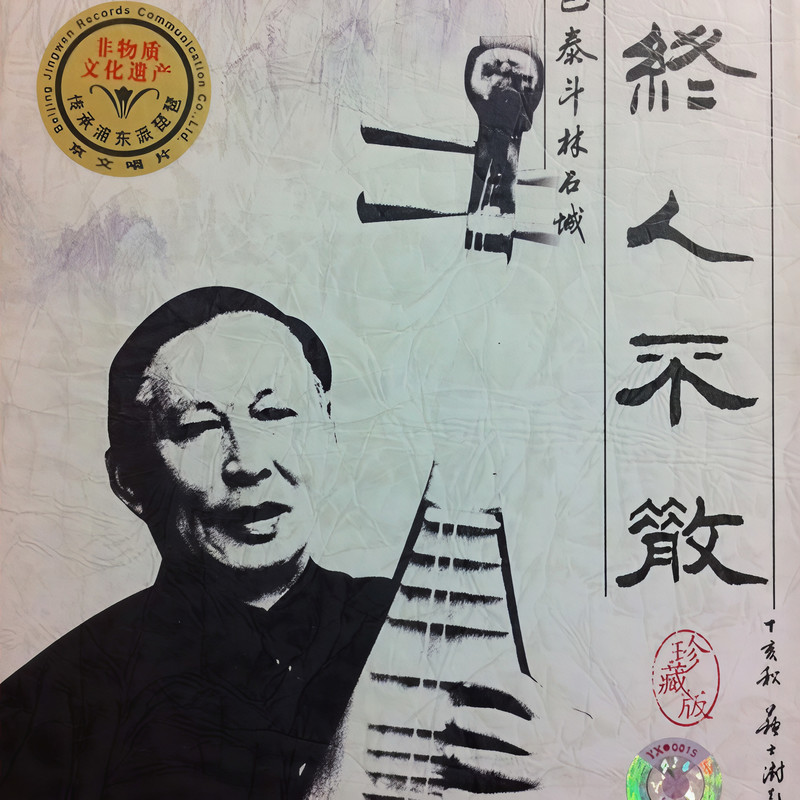 Beijing Jingwen Records Communication Co.,Ltd.
非物质
文化遗产
传承浦东派琵琶
京文唱片
終人不散
泰斗林石城
丁亥秋
珍藏版
YX●001S